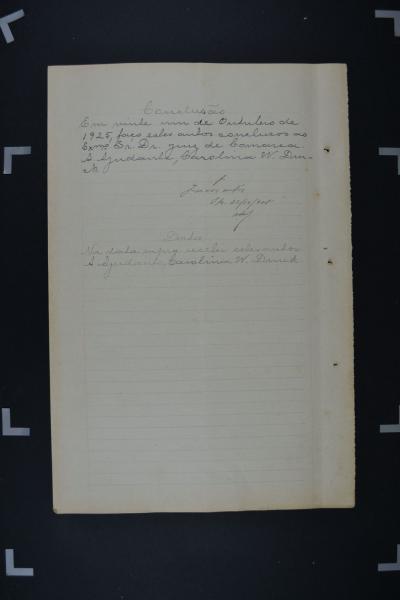 Conclusão
Em vinte um de Outubro de
1925, faço estes autos conclusos ao
Exmo. Sr. Dr. Juiz de Comarca.
A Ajudante, Carolina W. Dun-
k.
Data
Na data supra recebi estes autos
A Ajudante, Carolina W. Dunk